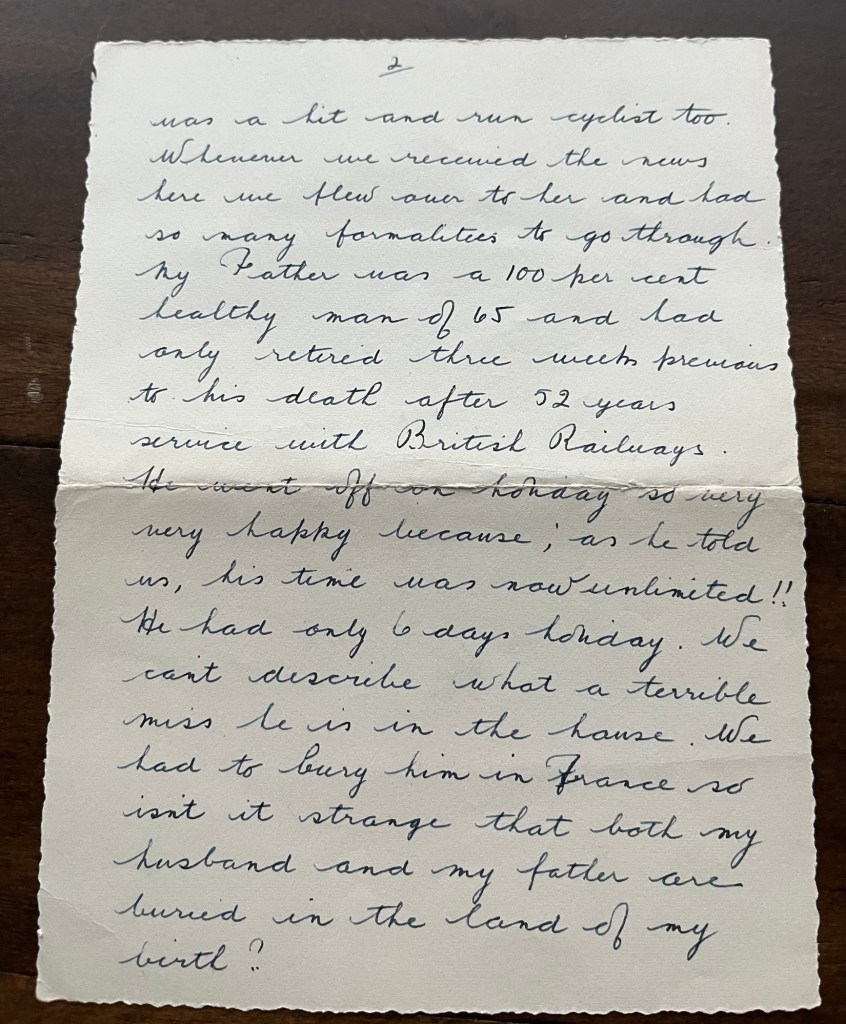 2
was a hit and run cyclist too.
Whenever we received the news
here we flew over to her and had
so many formalities to go through.
My Father was a 100 per cent
healthy man of 65 and had
only retired three weeks previous
to his death after 52 years
service with British Railways.
He went off on holiday so very
very happy because; as he told
us, his time was now unlimited!!
He had only 6 days holiday. We
cant describe what a terrible
miss he is in the house. We
had to bury him in France so
isnt it strange that both my
husband and my father are
buried in the land of my
birth?